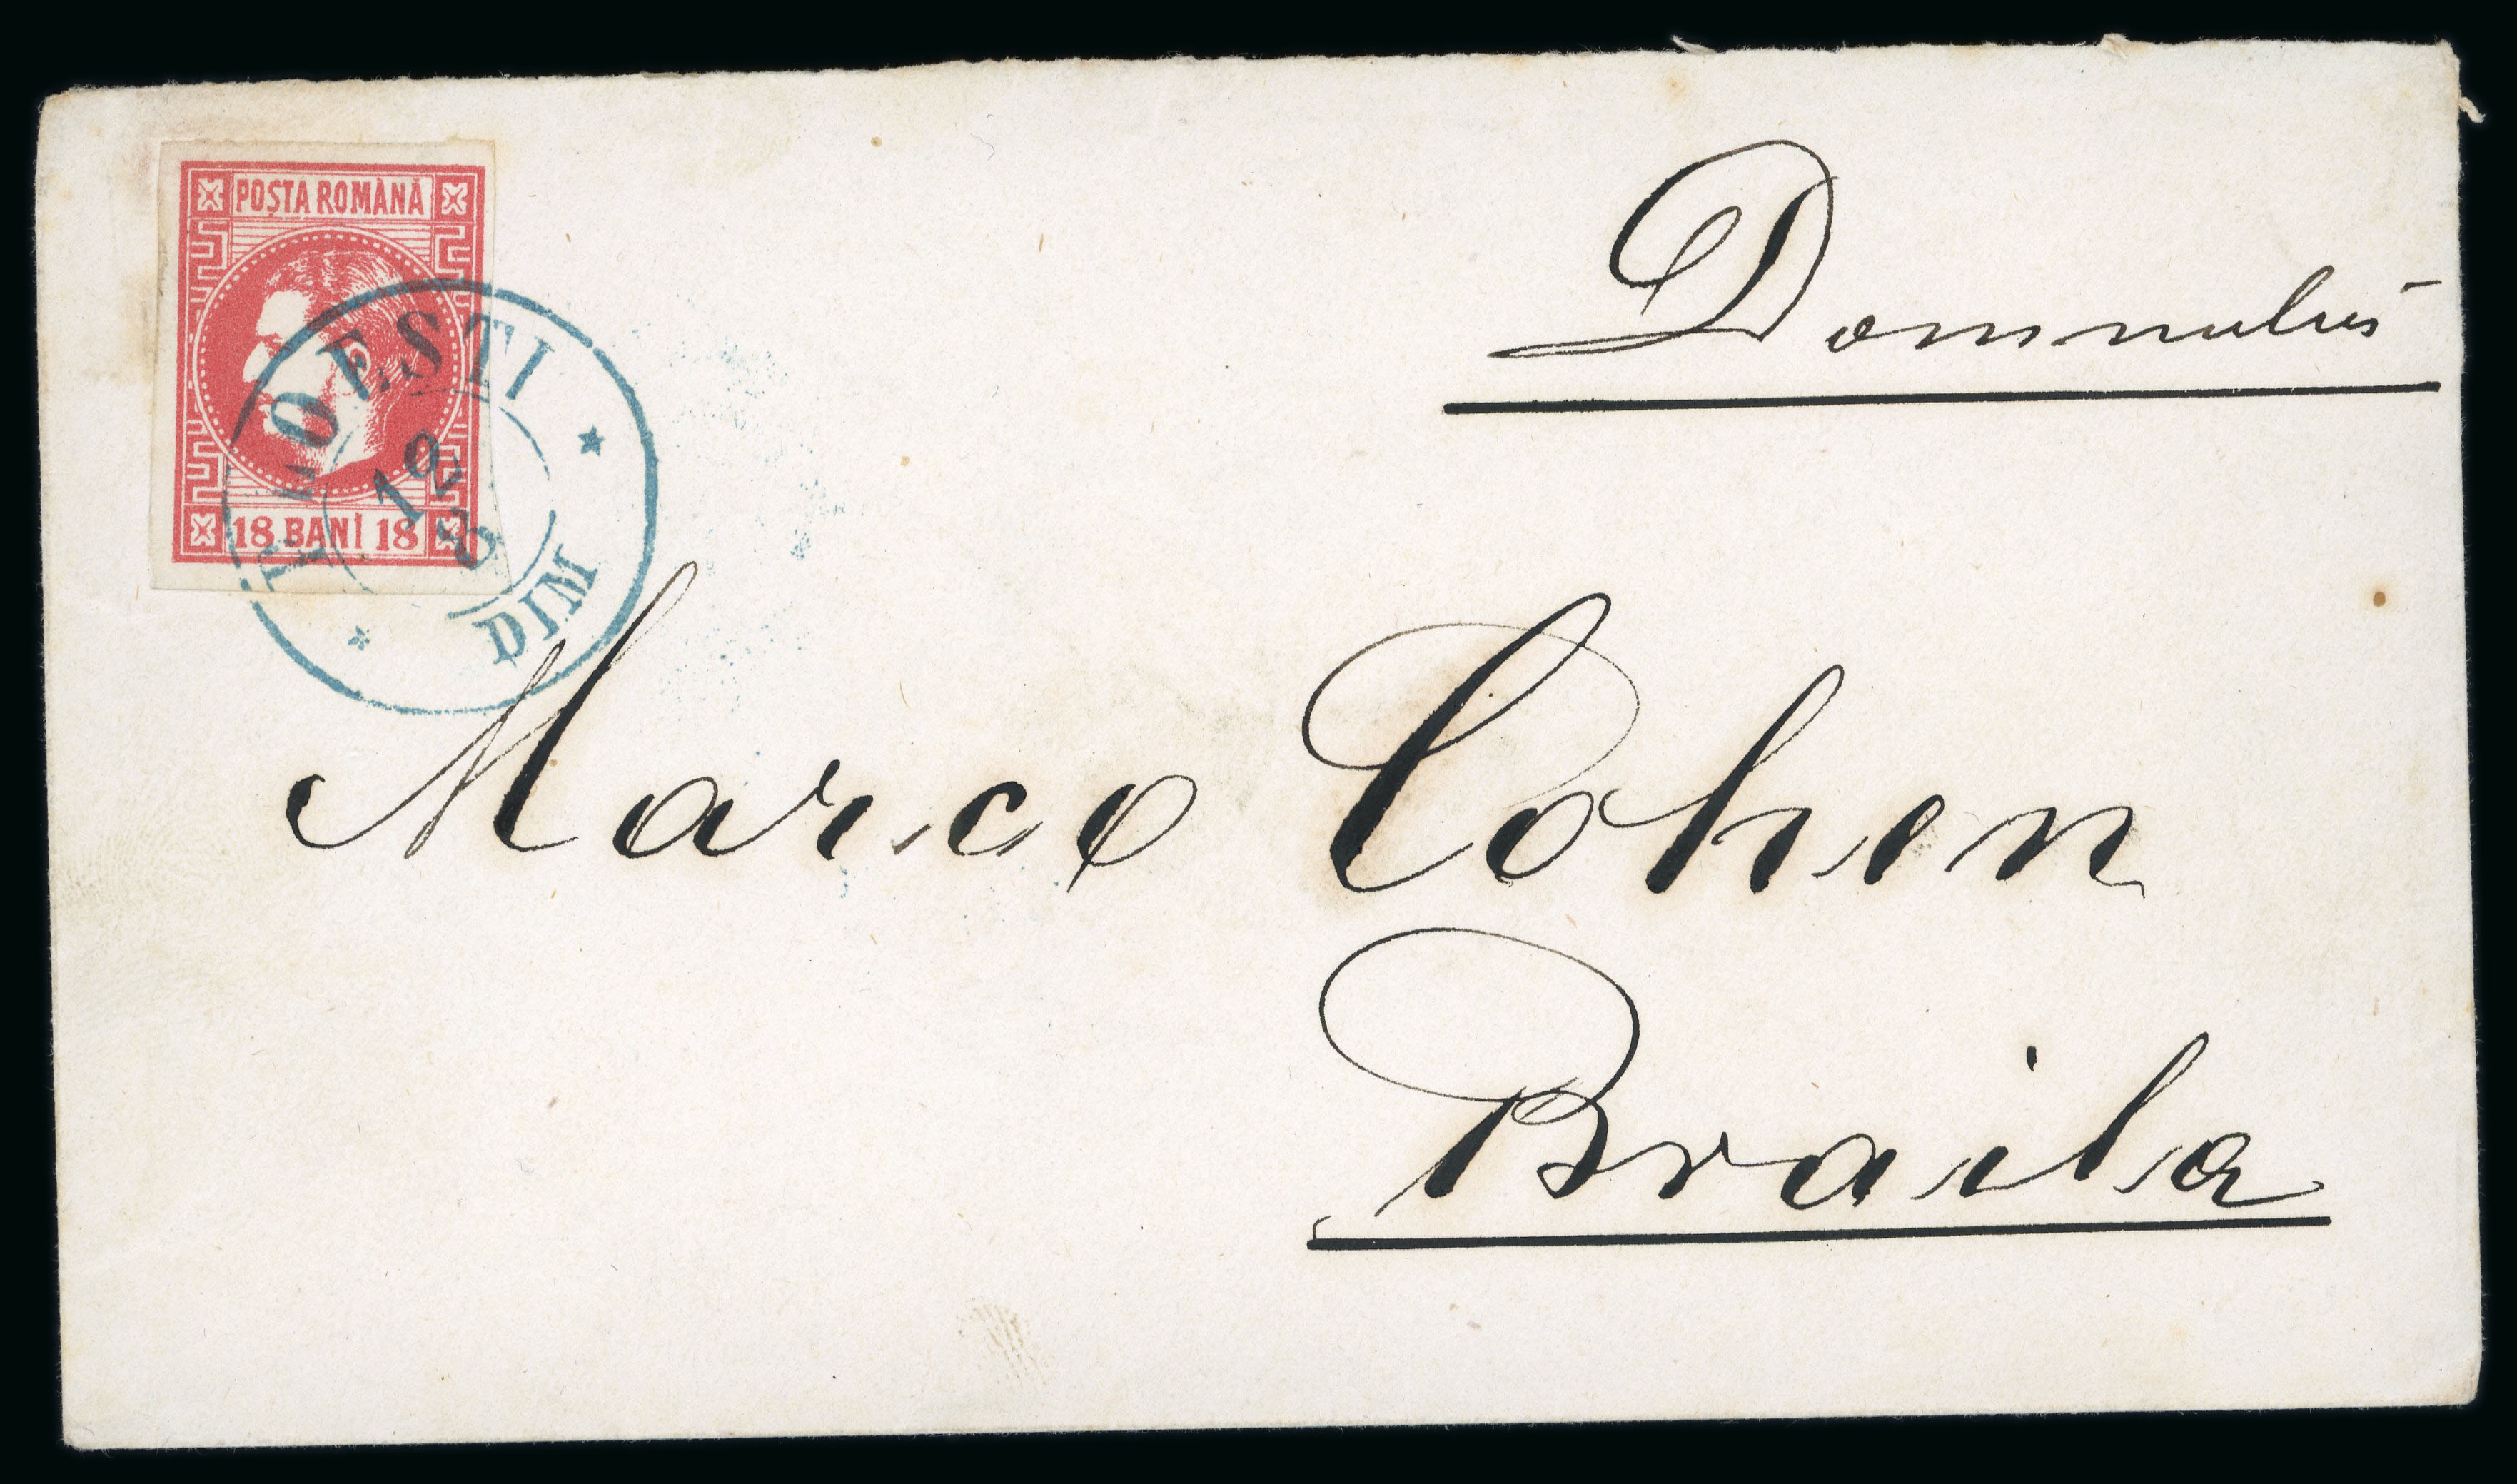 POSTA ROMÀNĂ
18 BANĬ 18
12
DIM
Domnuluĭ
Marco Cohen
Braila